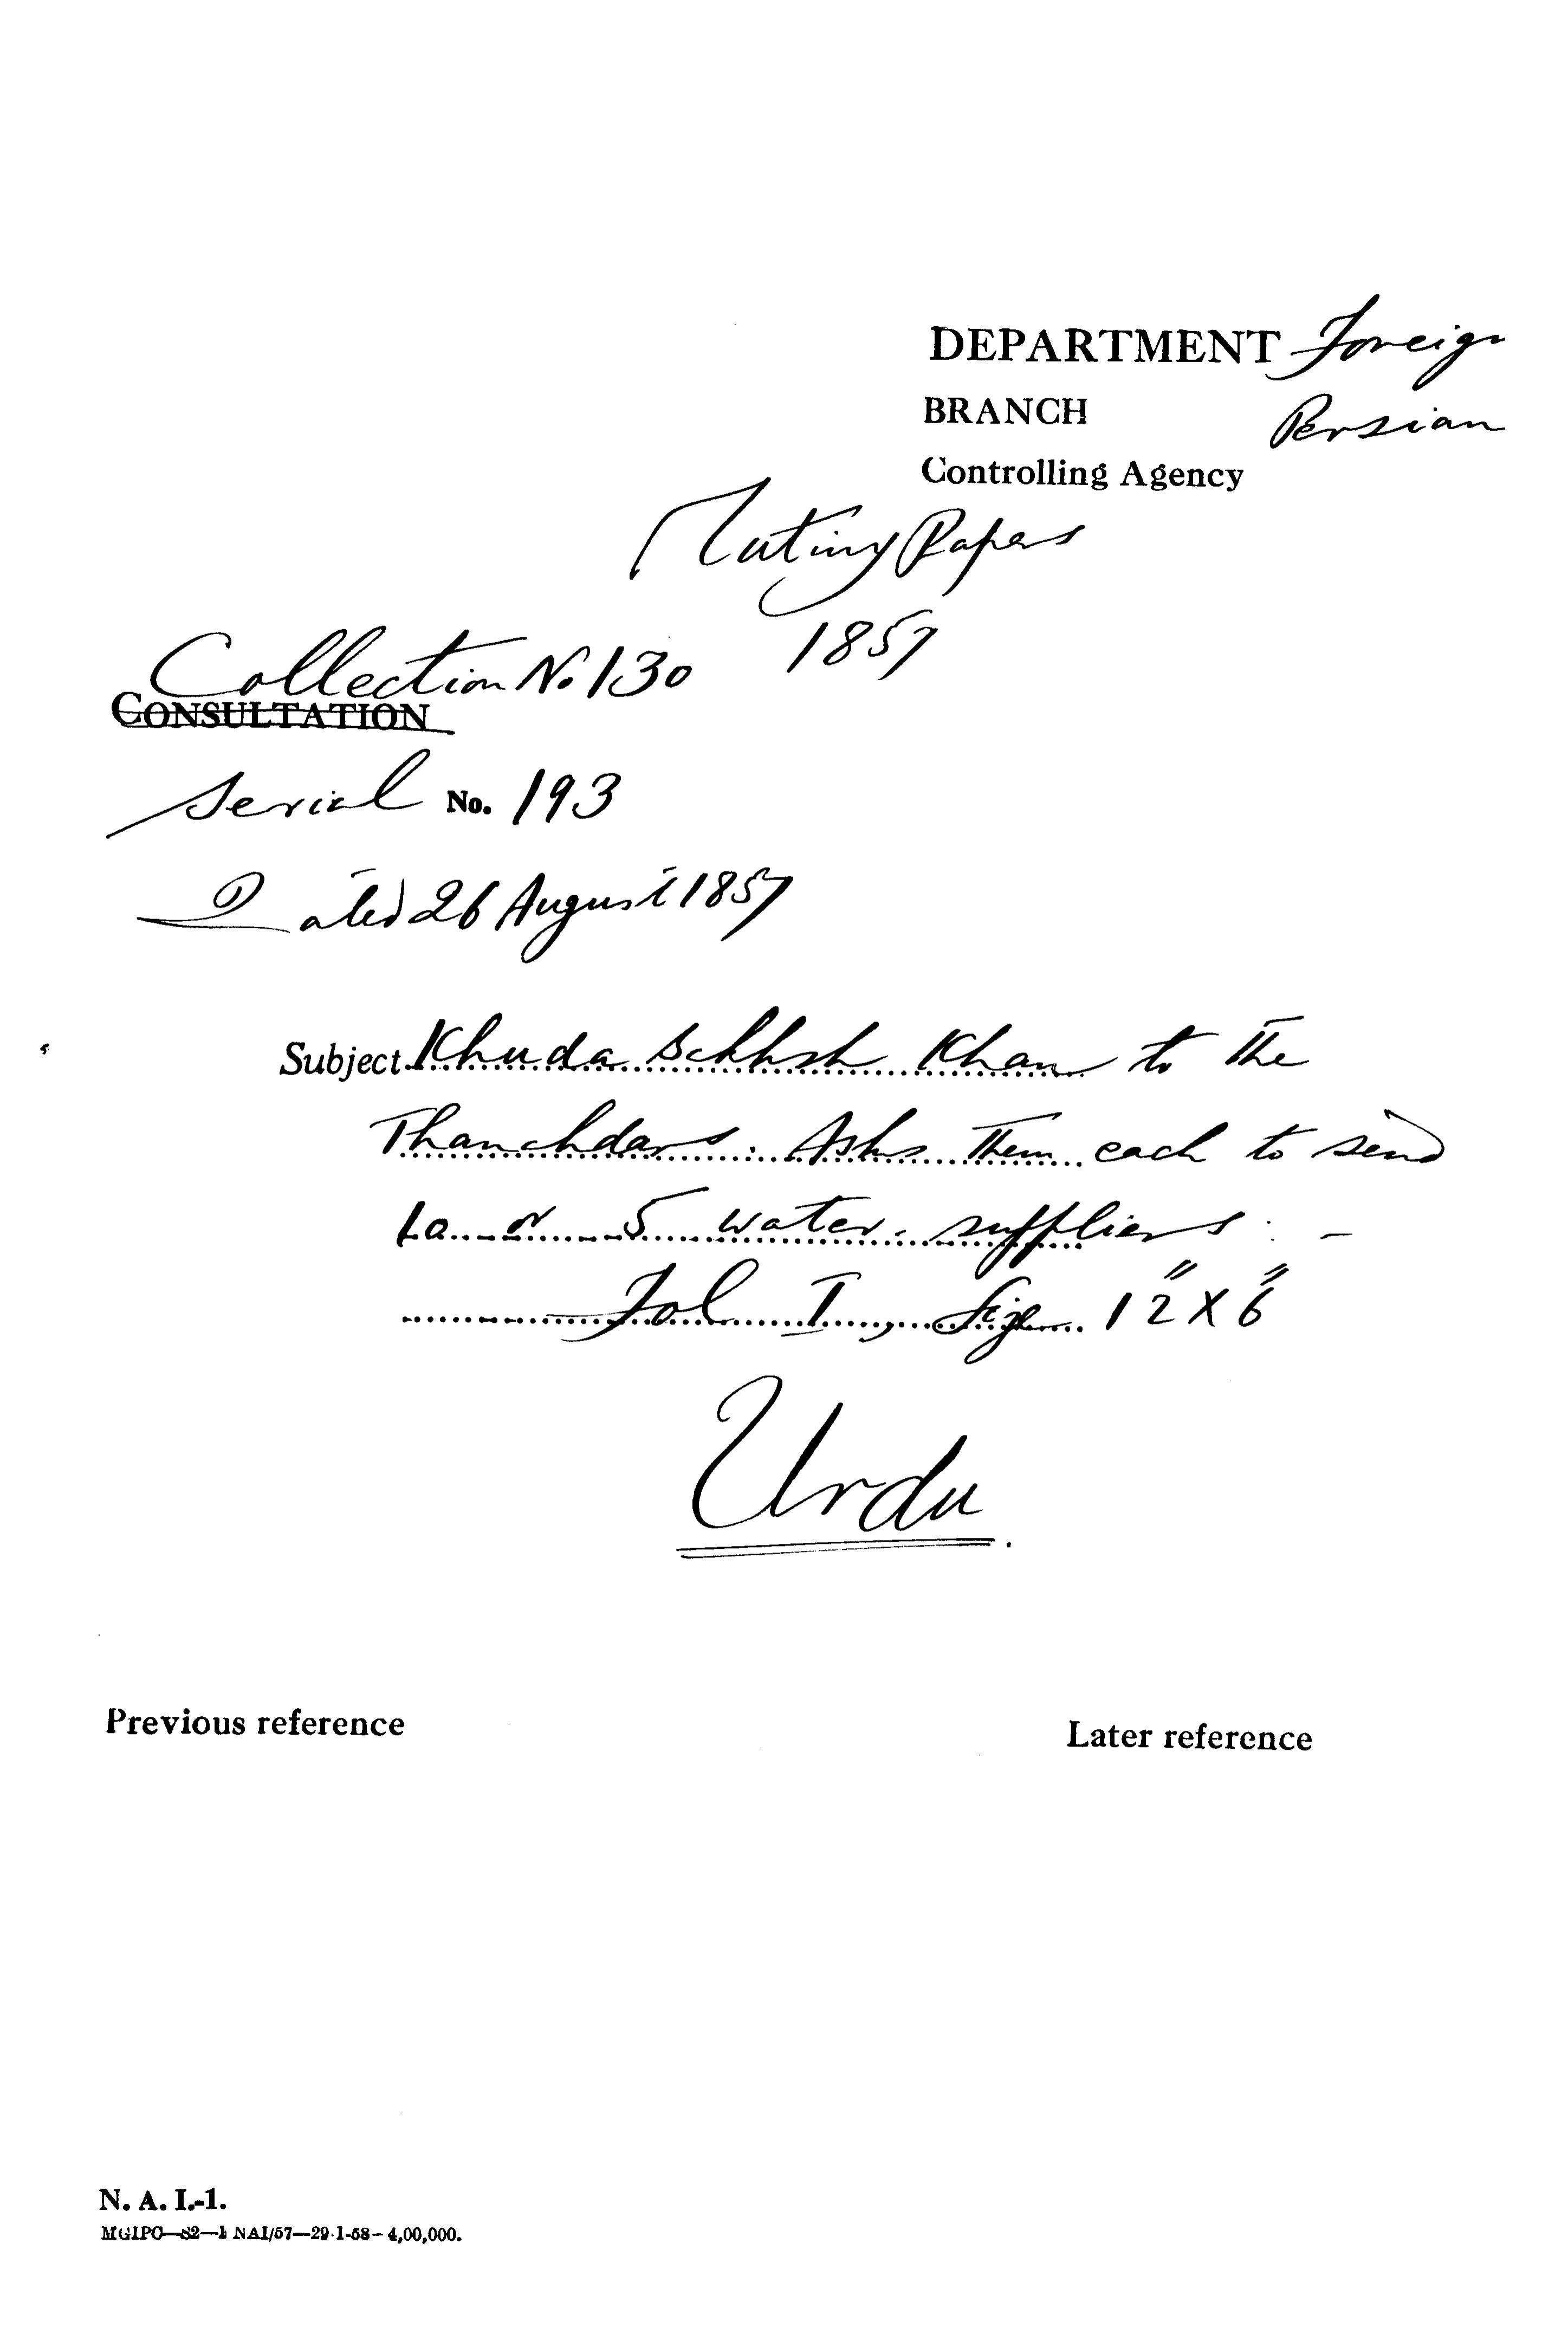 DEPARTMENT Foreign
BRANCH Persian
Controlling Agency
Mutiny Papers
1857
Collection No. 130
CONSULTATION
Serial No. 193
Dated 26 August 1857
Subject Khuda Bakhsh Khan to the
Thanahdars. Asks them each to send
10 or 5 water suppliers. -
Fol I, Size 12" X 6"
Urdu.
Previous reference
Later reference
N. A. I.-1.
MGIPC—S2—1 NAI/57—29-1-58—4,00,000.